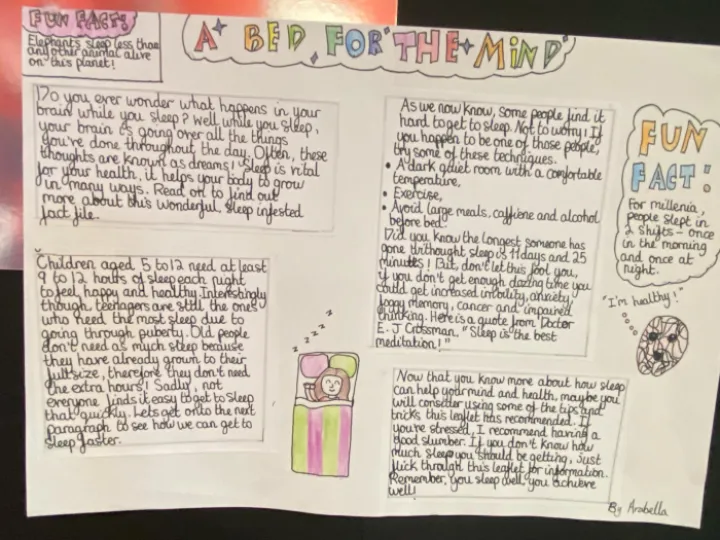 FUN FACT!
Elephants sleep less than
any other animal alive
on this planet!
A BED FOR THE MIND
Do you ever wonder what happens in your
brain while you sleep? Well while you sleep,
your brain is going over all the things
you're done throughout the day. Often, these
thoughts are known as dreams! Sleep is vital
for your health, it helps your body to grow
in many ways. Read on to find out
more about this wonderful, sleep infested
fact file.
Children aged 5 to 12 need at least
9 to 12 hours of sleep each night
to feel happy and healthy. Interestingly
though, teenagers are still the ones
who need the most sleep due to
going through puberty. Old people
don't need as much sleep because
they have already grown to their
full size, therefore they don't need
the extra hours! Sadly, not
everyone finds it easy to get to sleep
that quickly. Lets get onto the next
paragraph to see how we can get to
sleep faster.
z z z z z z
As we now know, some people find it
hard to get to sleep. Not to worry! If
you happen to be one of those people,
try some of these techniques.
• A dark quiet room with a comfortable
temperature,
• Exercise,
• Avoid large meals, caffiene and alcohol
before bed.
Did you know the longest someone has
gone without sleep is 11 days and 25
minutes! But, don't let this fool you,
if you don't get enough dozing time you
could get increased anxiety,
foggy memory, cancer and impaired
thinking. Here is a quote from Doctor
E. J Cossman. "Sleep is the best
meditation!"
FUN
FACT:
For millenia,
people slept in
2 shifts - once
in the morning
and once at
night.
"I'm healthy!"
Now that you know more about how sleep
can help your mind and health, maybe you
will consider using some of the tips and
tricks this leaflet has recommended. If
you're stressed, I recommend having a
good slumber. If you don't know how
much sleep you should be getting, just
flick through this leaflet for information.
Remember, you sleep well, you achieve
well!
By Arabella